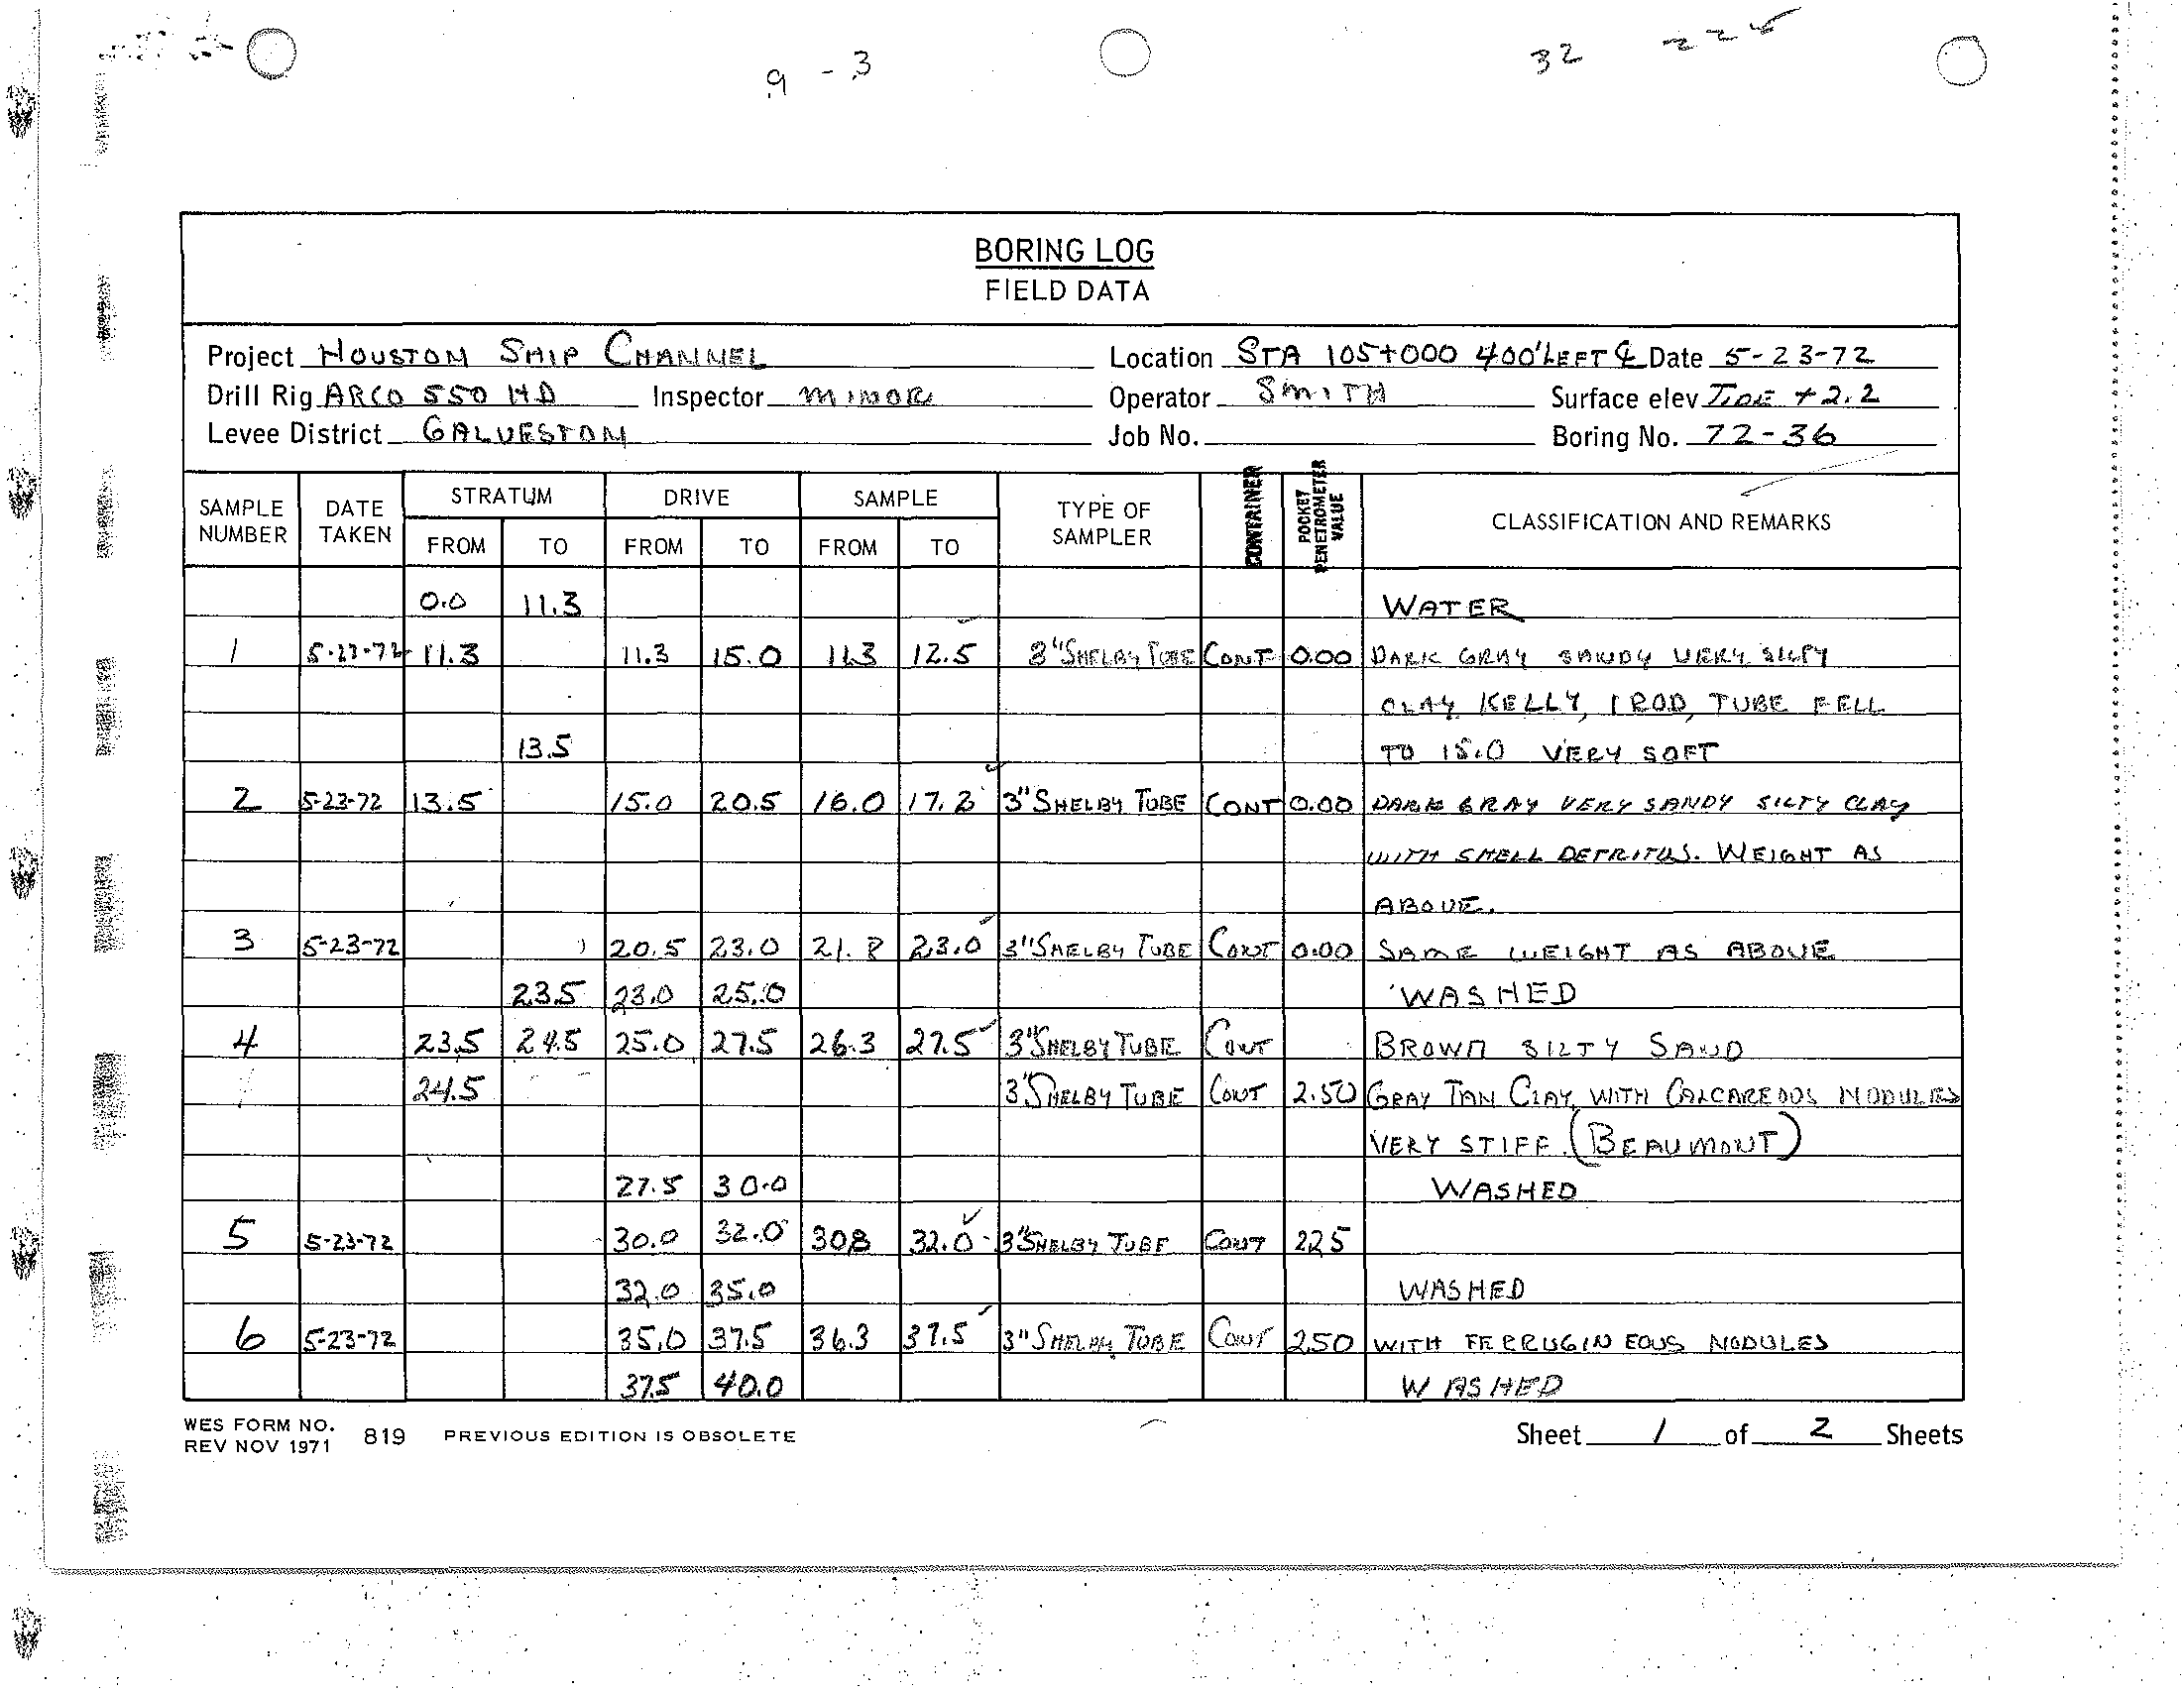 9 - 3
32
225
BORING LOG
FIELD DATA
Project HOUSTON SHIP CHANNEL Location STA 105+000 400' LEFT ℄ Date 5-23-72
Drill Rig ARCO 550 HD Inspector MINOR Operator SMITH Surface elev TIDE +2.2
Levee District GALVESTON Job No. Boring No. 72-36
SAMPLE NUMBER DATE TAKEN STRATUM FROM TO DRIVE FROM TO SAMPLE FROM TO TYPE OF SAMPLER CONTAINER POCKET PENETROMETER VALUE CLASSIFICATION AND REMARKS
0.0 11.3 WATER
1 5-23-72 11.3 11.3 15.0 11.3 12.5 3" SHELBY TUBE CONT 0.00 DARK GRAY SANDY VERY SILTY
CLAY KELLY, 1 ROD, TUBE FELL
13.5 TO 15.0 VERY SOFT
2 5-23-72 13.5 15.0 20.5 16.0 17.2 3" SHELBY TUBE CONT 0.00 DARK GRAY VERY SANDY SILTY CLAY
WITH SHELL DETRITUS. WEIGHT AS
ABOVE.
3 5-23-72 20.5 23.0 21.8 23.0 3" SHELBY TUBE CONT 0.00 SAME WEIGHT AS ABOVE
23.5 23.0 25.0 WASHED
4 23.5 24.5 25.0 27.5 26.3 27.5 3" SHELBY TUBE CONT BROWN SILTY SAND
24.5 3" SHELBY TUBE CONT 2.50 GRAY TAN CLAY, WITH CALCAREOUS NODULES
VERY STIFF. (BEAUMONT)
27.5 30.0 WASHED
5 5-23-72 30.0 32.0 30.8 32.0 3" SHELBY TUBE CONT 2.25
32.0 35.0 WASHED
6 5-23-72 35.0 37.5 36.3 37.5 3" SHELBY TUBE CONT 2.50 WITH FERRUGINEOUS NODULES
37.5 40.0 WASHED
WES FORM NO. 819 PREVIOUS EDITION IS OBSOLETE Sheet 1 of 2 Sheets
REV NOV 1971